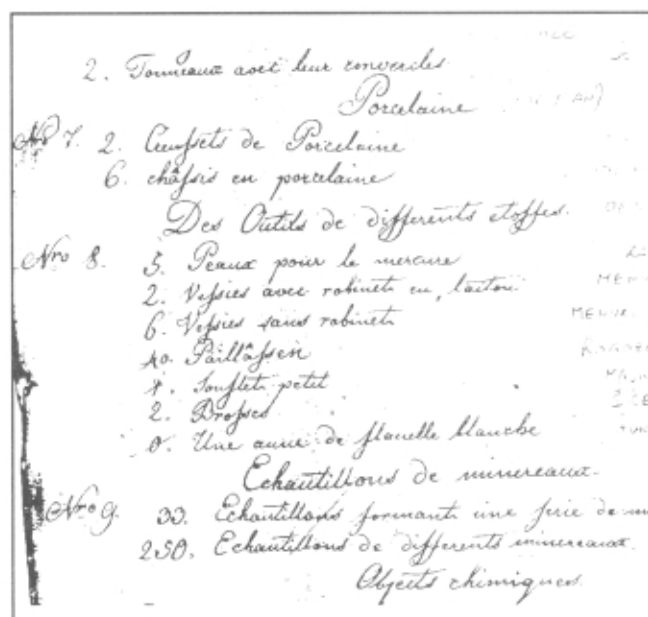 2. Tonneaux avec leur couvercles
Porcelaine
Nro 7. 2. Creussets de Porcelaine
6. châssis en porcelaine
Des Outils de differents etoffes.
Nro 8. 5. Peaux pour le mercure
2. Vessies avec robinets en laiton.
6. Vessies sans robinets
40. Paillâssen
1. Souflet petit
2. Brosses
0. Une aune de flanelle blanche
Echantillons de minereaux.
Nro 9. 33. Echantillons formant une serie de
250. Echantillons de differents minereaux.
Objects chimiques.